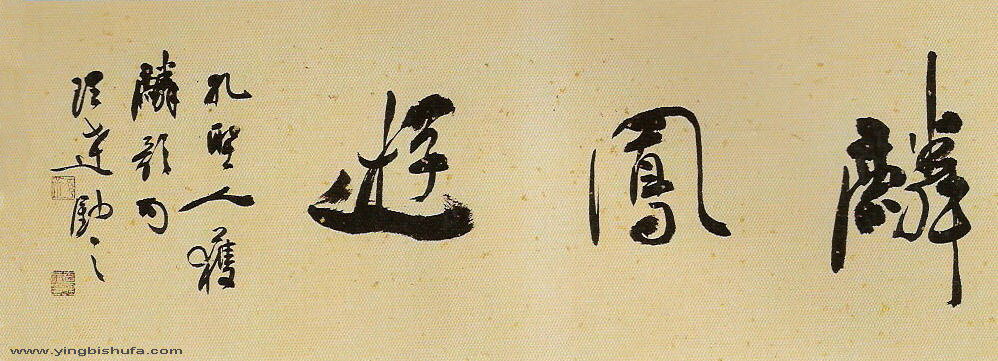 麟鳳遊
孔聖人獲
麟歌句
達
www.yingbishufa.com